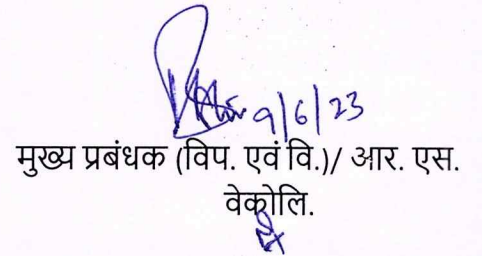 9/6/23
मुख्य प्रबंधक (विप. एवं वि.)/ आर. एस.
वेकोलि.